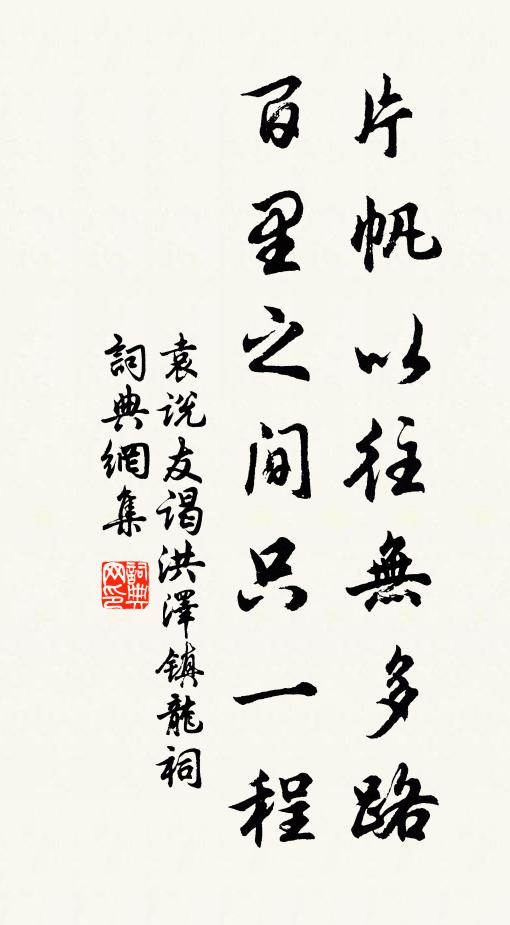 片帆以往無多路
百里之间只一程
袁说友谒洪澤镇龍祠
詞典網集
詞典网印